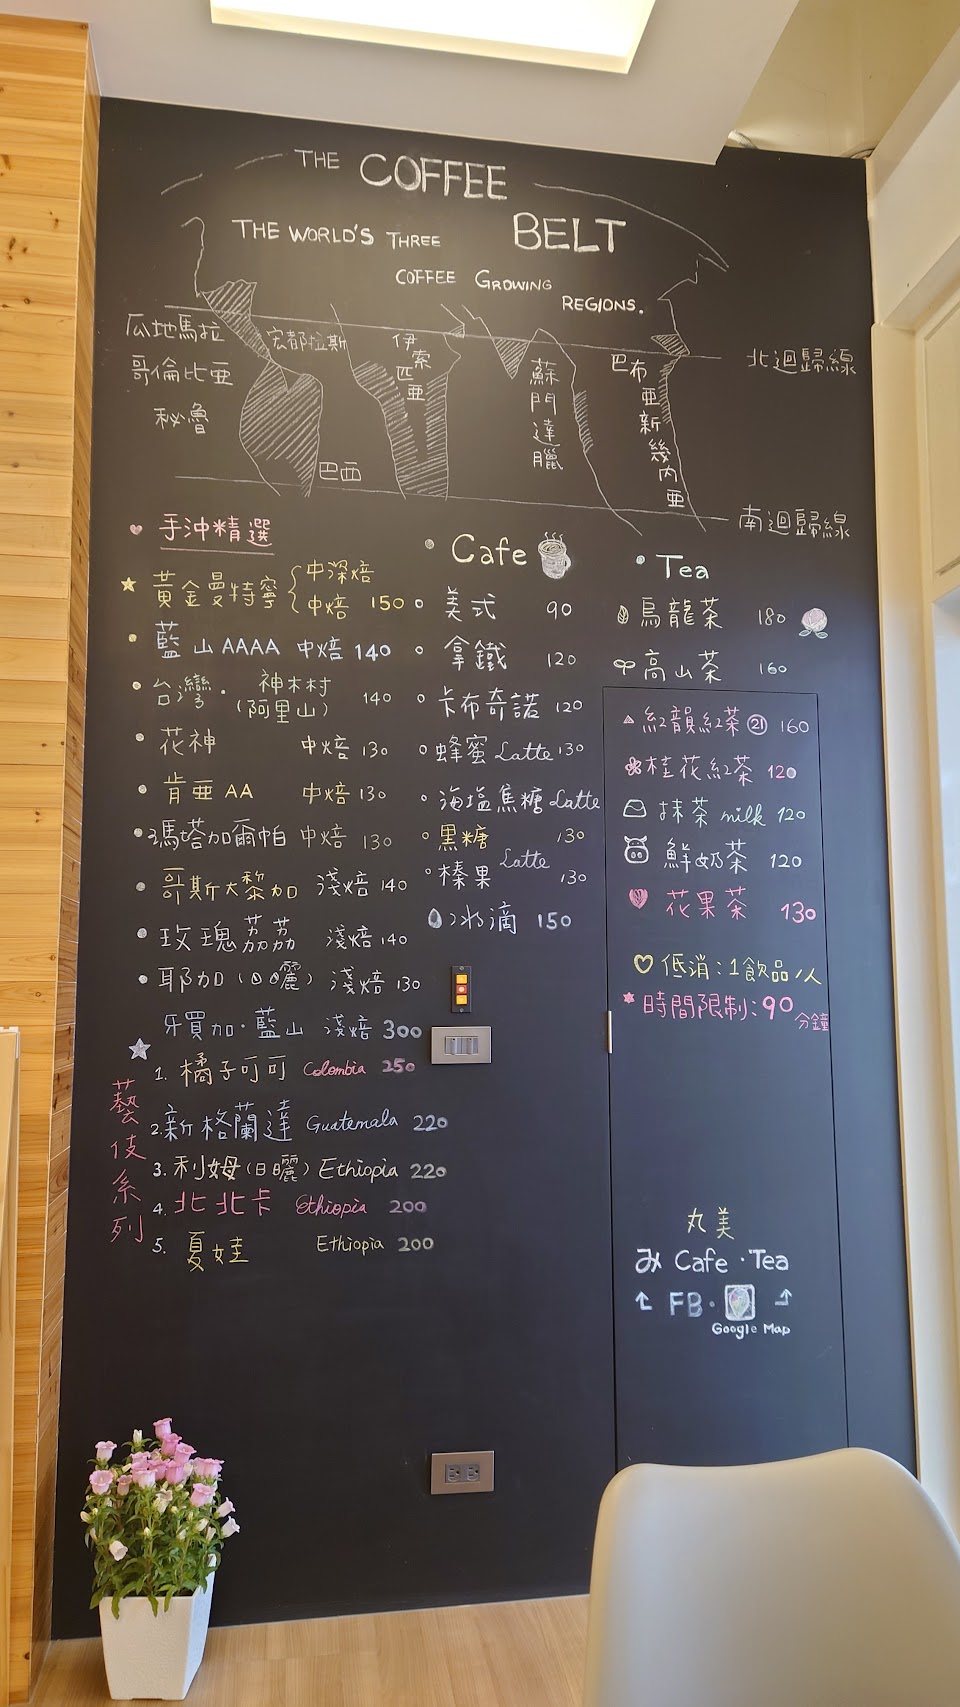 THE COFFEE
BELT
THE WORLD'S THREE
COFFEE GROWING
REGIONS.
瓜地馬拉
宏都拉斯
哥倫比亞
秘魯
巴西
伊索匹亞
蘇門達臘
巴布亞新幾內亞
北迴歸線
南迴歸線
手沖精選
黃金曼特寧 中深焙
中焙 150
藍山AAAA 中焙 140
台灣・神木村(阿里山) 140
花神 中焙 130
肯亞AA 中焙 130
瑪塔加爾帕 中焙 130
哥斯大黎加 淺焙 140
玫瑰荔荔 淺焙 140
耶加(日曬) 淺焙 130
牙買加・藍山 淺焙 300
藝伎系列
1. 橘子可可 Colombia 250
2. 新格蘭達 Guatemala 220
3. 利姆(日曬) Ethiopia 220
4. 北北卡 Ethiopia 200
5. 夏娃 Ethiopia 200
Cafe
美式 90
拿鐵 120
卡布奇諾 120
蜂蜜 Latte 130
海塩焦糖 Latte
130
黑糖 Latte
榛果 130
冰滴 150
Tea
烏龍茶 180
高山茶 160
紅韻紅茶 21 160
桂花紅茶 120
抹茶 milk 120
鮮奶茶 120
花果茶 130
低消:1飲品/人
時間限制:90分鐘
丸美
み Cafe・Tea
FB・
Google Map